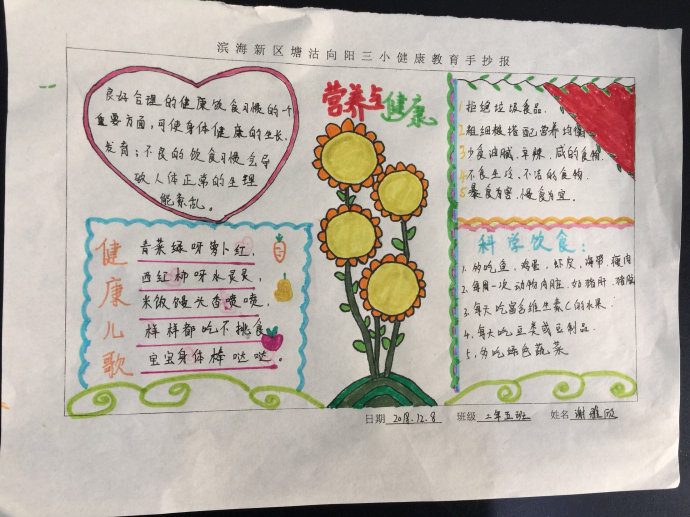 滨海新区塘沽向阳三小健康教育手抄报
营养与健康
良好合理的健康饮食习惯的一个
重要方面,可使身体健康的生长、
发育;不良的饮食习惯会导
致人体正常的生理
能紊乱。
健康儿歌
青菜绿呀萝卜红,
西红柿呀水灵灵,
米饭馒头香喷喷,
样样都吃不挑食
宝宝身体棒哒哒。
1 拒绝垃圾食品,
2 粗细粮搭配营养均衡
3 少食油腻、辛辣、咸的食物.
4 不食生冷、不洁的食物.
5 暴食为害,慢食为宜.
科学饮食:
1、多吃鱼,鸡蛋,虾皮,海带,瘦肉
2、每周一次动物内脏,如猪肝,猪脑
3、每天吃富多维生素C的水果.
4、每天吃豆类或豆制品.
5、多吃绿色蔬菜
日期 2018.12.8 班级 二年五班 姓名 谢雅欣